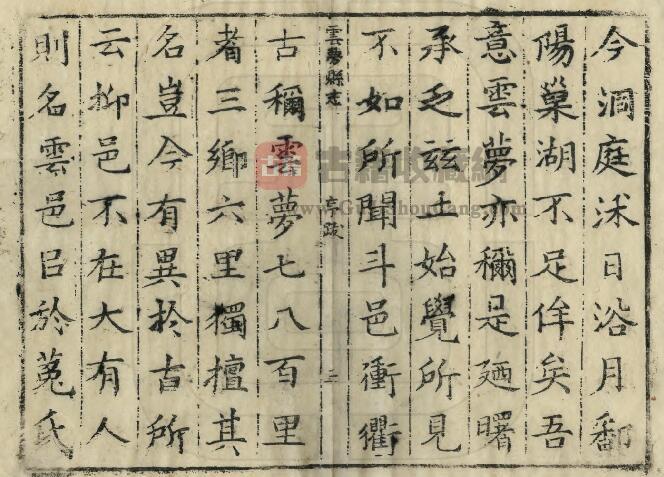 今洞庭沐日浴月鄱
陽巢湖不足侔矣吾
意雲夢亦稱是廼曙
承乏茲土始覺所見
不如所聞斗邑衝衢
雲夢縣志 二
古稱雲夢七八百里
者三鄉六里獨擅其
名豈今有異於古所
云抑邑不在大有人
則名雲邑㠯於菟氏